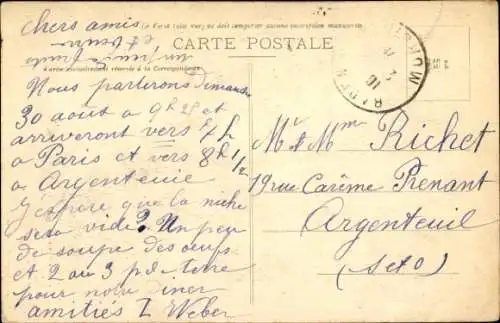 chers amis
(Le Recto (côté vue) ne doit comporter aucune inscription manuscrite
CARTE POSTALE
Partie exclusivement réservée à la Correspondance
Nous partirons Dimanche
30 août a 9h 25 et
arriveront vers 7h
a Paris et vers 8h 1/2
a Argenteuil
J'espère que la niche
sera vide? Un peu
de soupe des oeufs
et 2 ou 3 p.d. terre
pour notre diner
amitiés I Weber
Mr & Mme Richet
19 rue Carème Prenant
Argenteuil
(S et O)